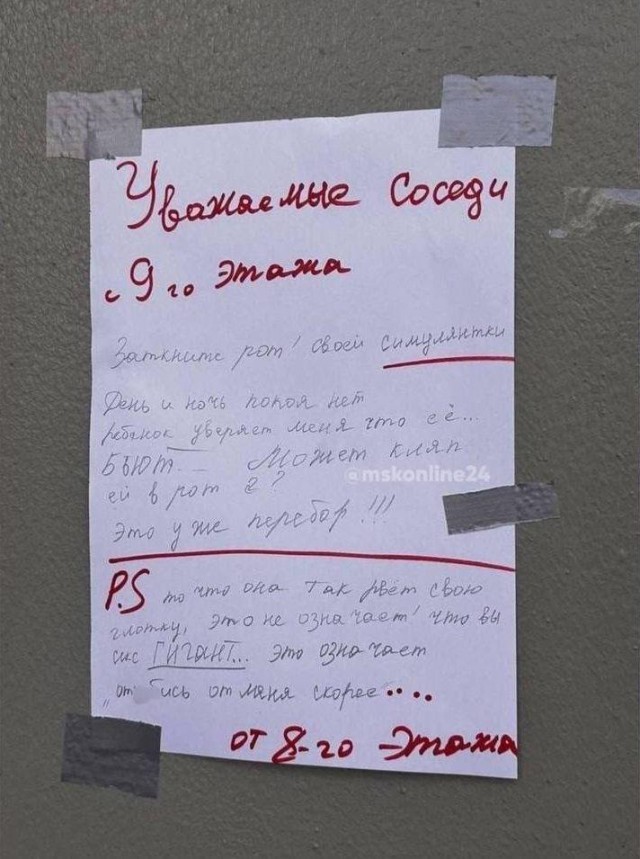 Уважаемые соседи
с 9 го этажа
Заткните рот своей симулянтки
День и ночь покоя нет
ребёнок уверяет меня что её...
БЬЮТ. Может кляп
@mskonline24
ей в рот а?
Это уже перебор!!!
P.S то что она так рвёт свою
глотку, это не означает что вы
секс ГИГАНТ... это означает
от бись от меня скорее....
от 8-го этажа